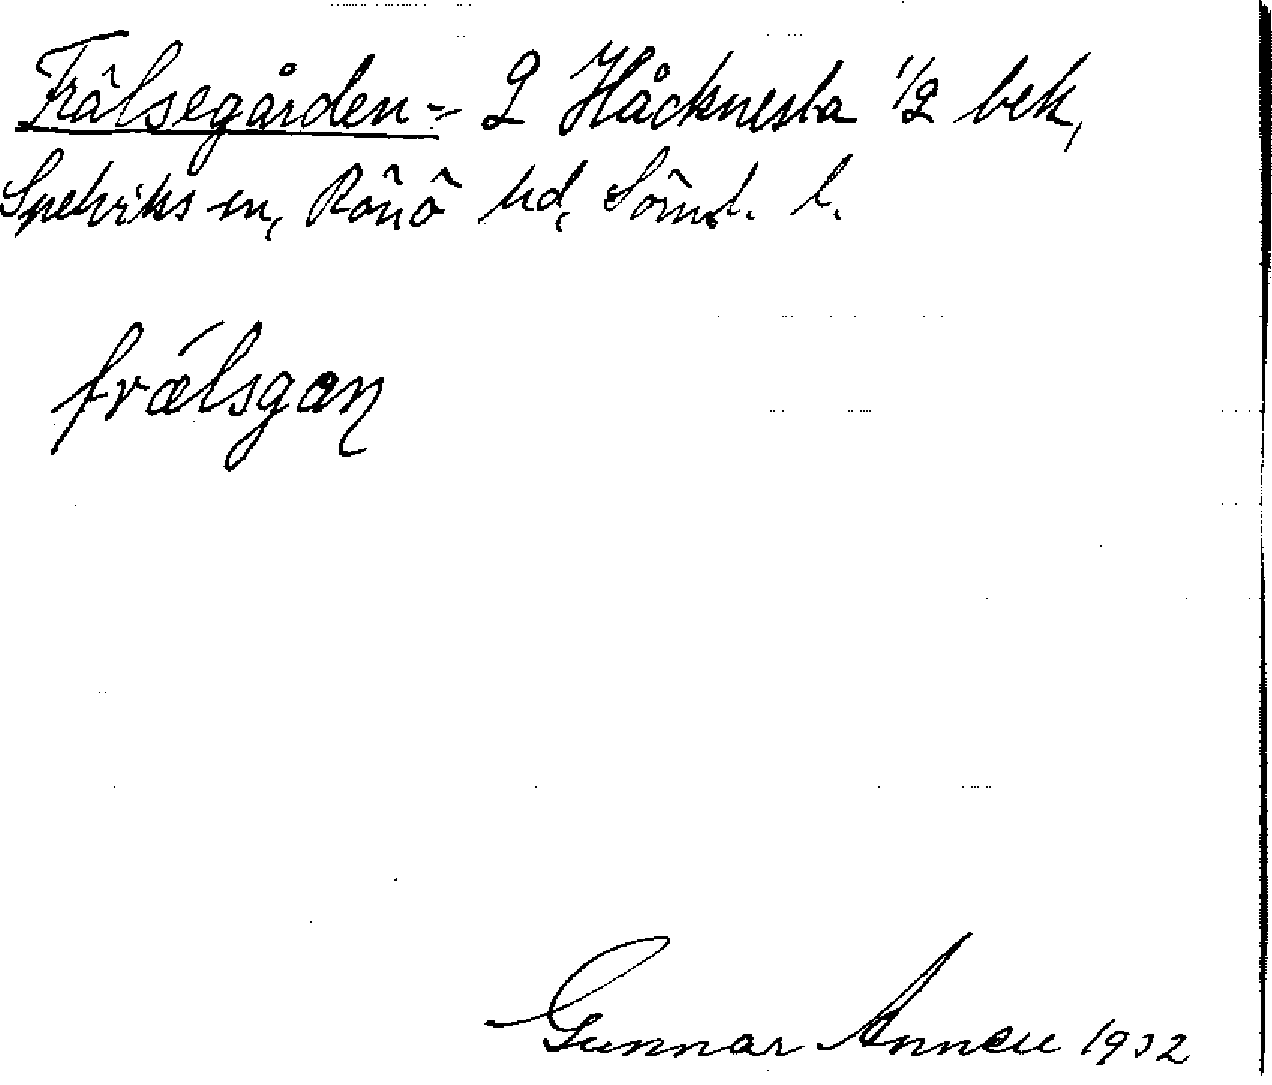 Frälsegården = 2 Håcknesta 1/2 bek,
Spelviks sn, Rönö hd, Söml. l.
frælsgaɳ
Gunnar Annell 1932